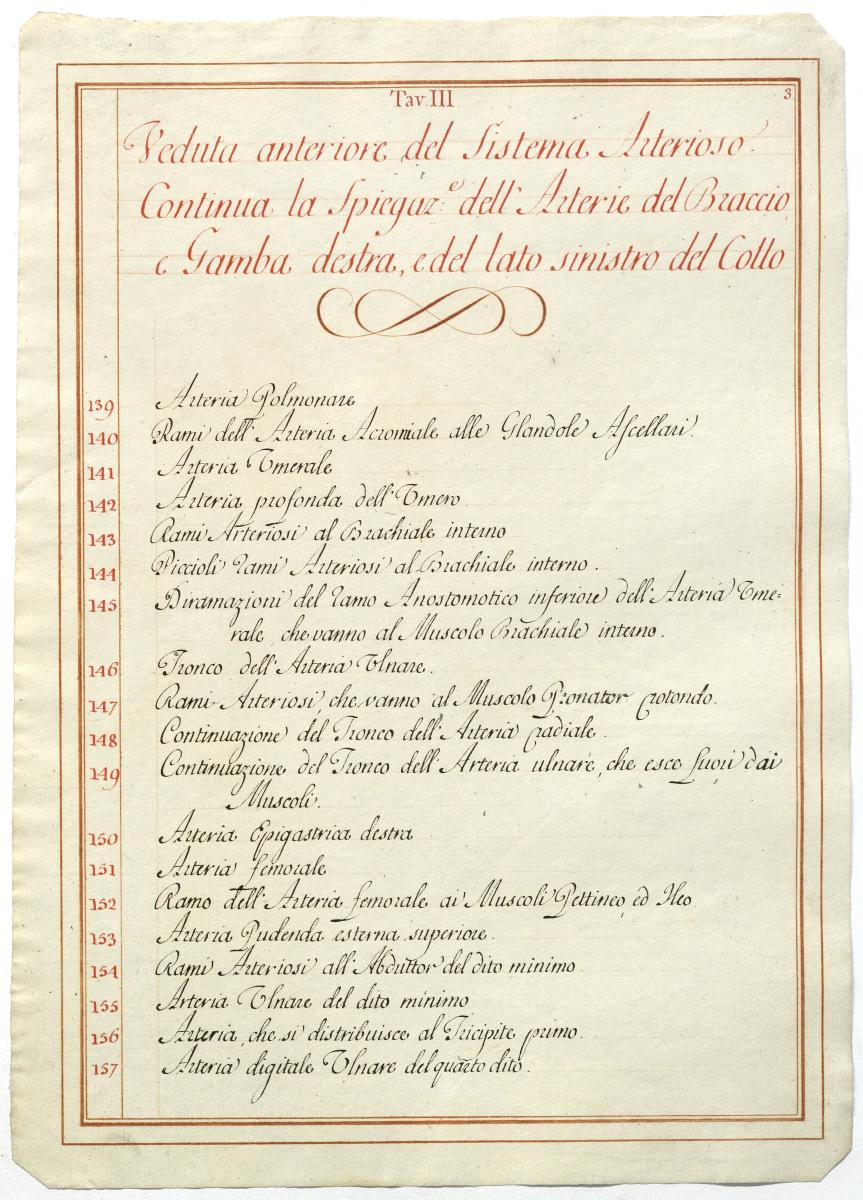 Tav. III.
3
Veduta anteriore del Sistema Arterioso.
Continua la Spiegaz:e dell'Arterie del Braccio,
e Gamba destra, e del lato sinistro del Collo
139 Arteria Polmonare
140 Rami dell'Arteria Acromiale alle Glandole Ascellari.
141 Arteria Umerale
142 Arteria profonda dell'Umero
143 Rami Arteriosi al Brachiale interno
144 Piccioli rami Arteriosi al Brachiale interno.
145 Diramazioni del ramo Anostomotico inferiore dell'Arteria Ume-
rale, che vanno al Muscolo Brachiale interno.
146 Tronco dell'Arteria Ulnare.
147 Rami Arteriosi, che vanno al Muscolo Pronator rotondo.
148 Continuazione del Tronco dell'Arteria radiale.
149 Continuazione del Tronco dell'Arteria ulnare, che esce fuori dai
Muscoli.
150 Arteria Epigastrica destra
151 Arteria femorale
152 Ramo dell'Arteria femorale ai Muscoli Pettineo, ed Ileo
153 Arteria Pudenda esterna superiore.
154 Rami Arteriosi all'Abduttor del dito minimo
155 Arteria Ulnare del dito minimo
156 Arteria, che si distribuisce al Tricipite primo.
157 Arteria digitale Ulnare del quarto dito.